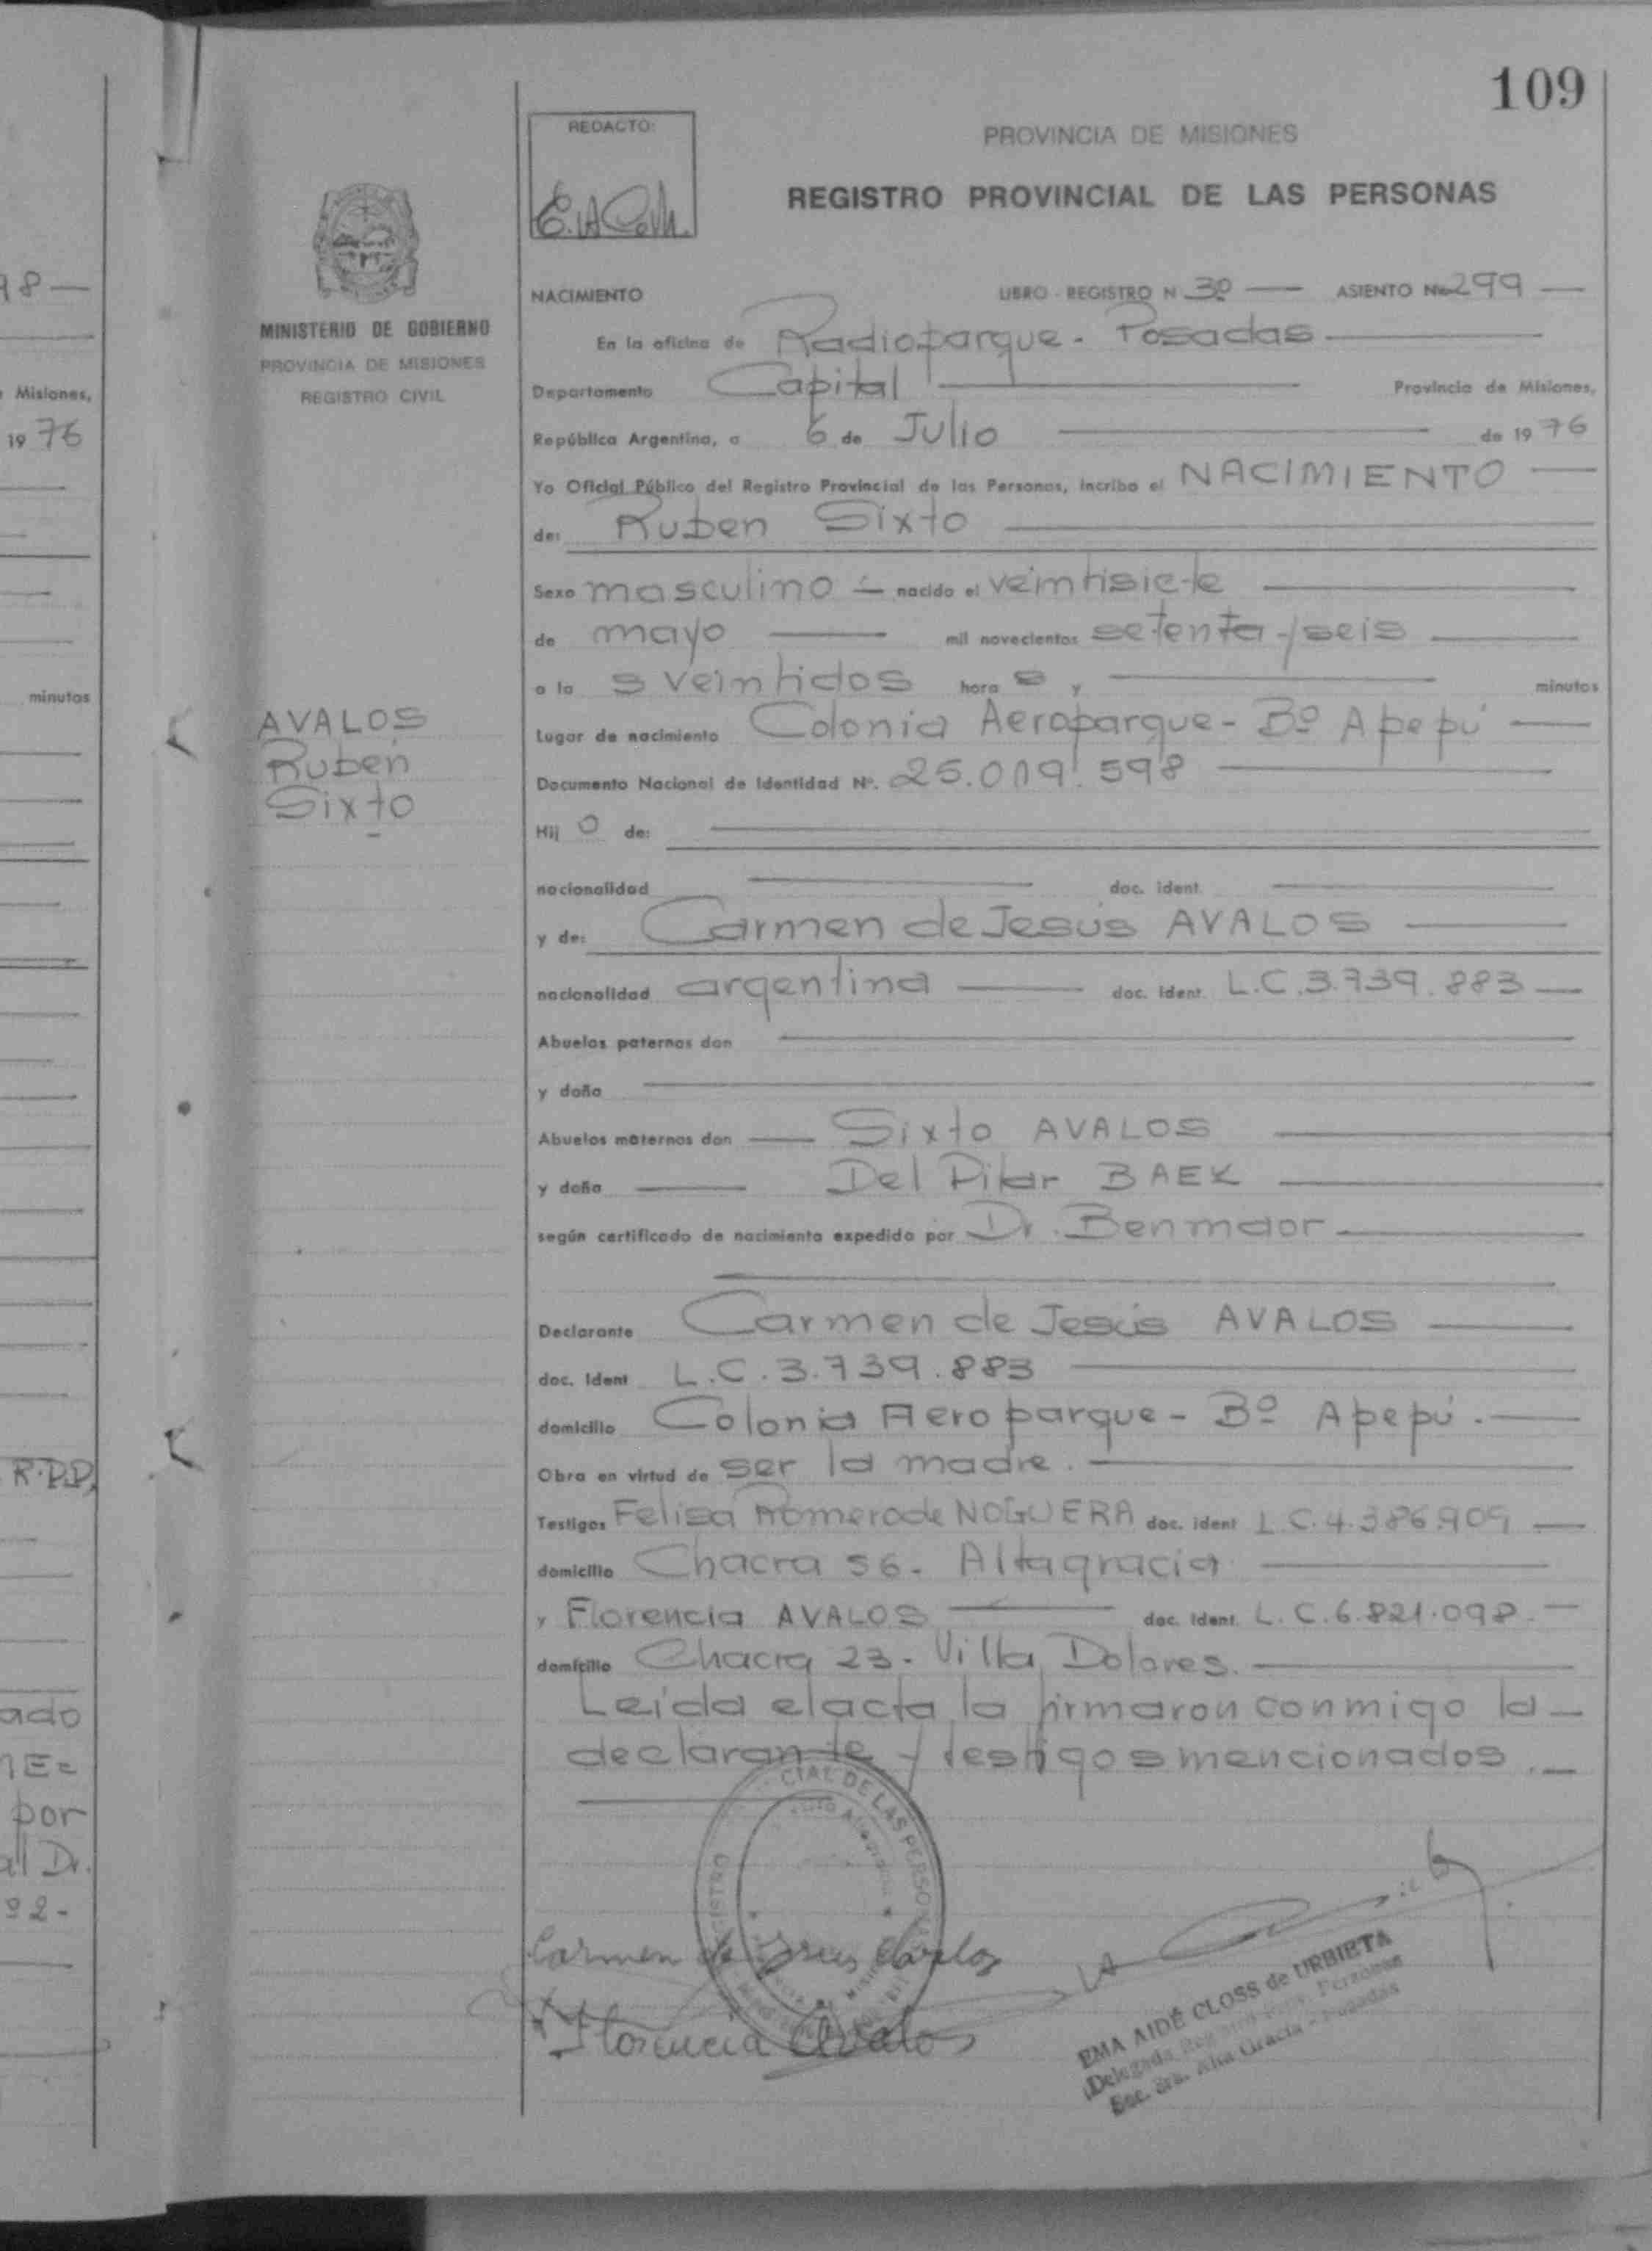 109
REDACTO:
PROVINCIA DE MISIONES
REGISTRO PROVINCIAL DE LAS PERSONAS
MINISTERIO DE GOBIERNO
PROVINCIA DE MISIONES
REGISTRO CIVIL
AVALOS
Ruben
Sixto
NACIMIENTO LIBRO - REGISTRO N 3º ASIENTO Nº 299
En la oficina de Radioparque - Posadas
Departamento Capital Provincia de Misiones,
República Argentina, a 6 de Julio de 19 76
Yo Oficial Público del Registro Provincial de las Personas, incribo el NACIMIENTO
de: Ruben Sixto
Sexo masculino nacido el veintisiete
de mayo mil novecientos setenta y seis
a la s veintidos hora s y minutos
Lugar de nacimiento Colonia Aeroparque - Bº Apepú
Documento Nacional de Identidad Nº. 25.019.598
Hij o de:
nacionalidad doc. ident.
y de: Carmen de Jesús AVALOS
nacionalidad argentina doc. ident. L.C.3.739.883
Abuelos paternos don
y doña
Abuelos maternos don Sixto AVALOS
y doña Del Pilar BAEK
según certificado de nacimiento expedido por Dr. Benmaor
Declarante Carmen de Jesús AVALOS
doc. Ident L.C.3.739.883
domicilio Colonia Aeroparque - Bº Apepú.
Obra en virtud de ser la madre.
Testigos Felisa Romero de NOGUERA doc. ident L.C.4.386.909
domicilio Chacra 56. Altagracia
y Florencia AVALOS doc. Ident. L.C.6.821.098.
domicilio Chacra 23. Villa Dolores.
Leida el acta la firmaron conmigo la
declarante y testigos mencionados.
CIAL DE LAS PERSO
REGISTRO
Carmen de Jesus Avalos
Florencia Avalos
EMA AIDÉ CLOSS de URBIETA
Delegada Registro Prov. Personas
Alta Gracia - Posadas
98
Misiones,
19 76
minutos
R.P.P,
ado
por
al Dr.